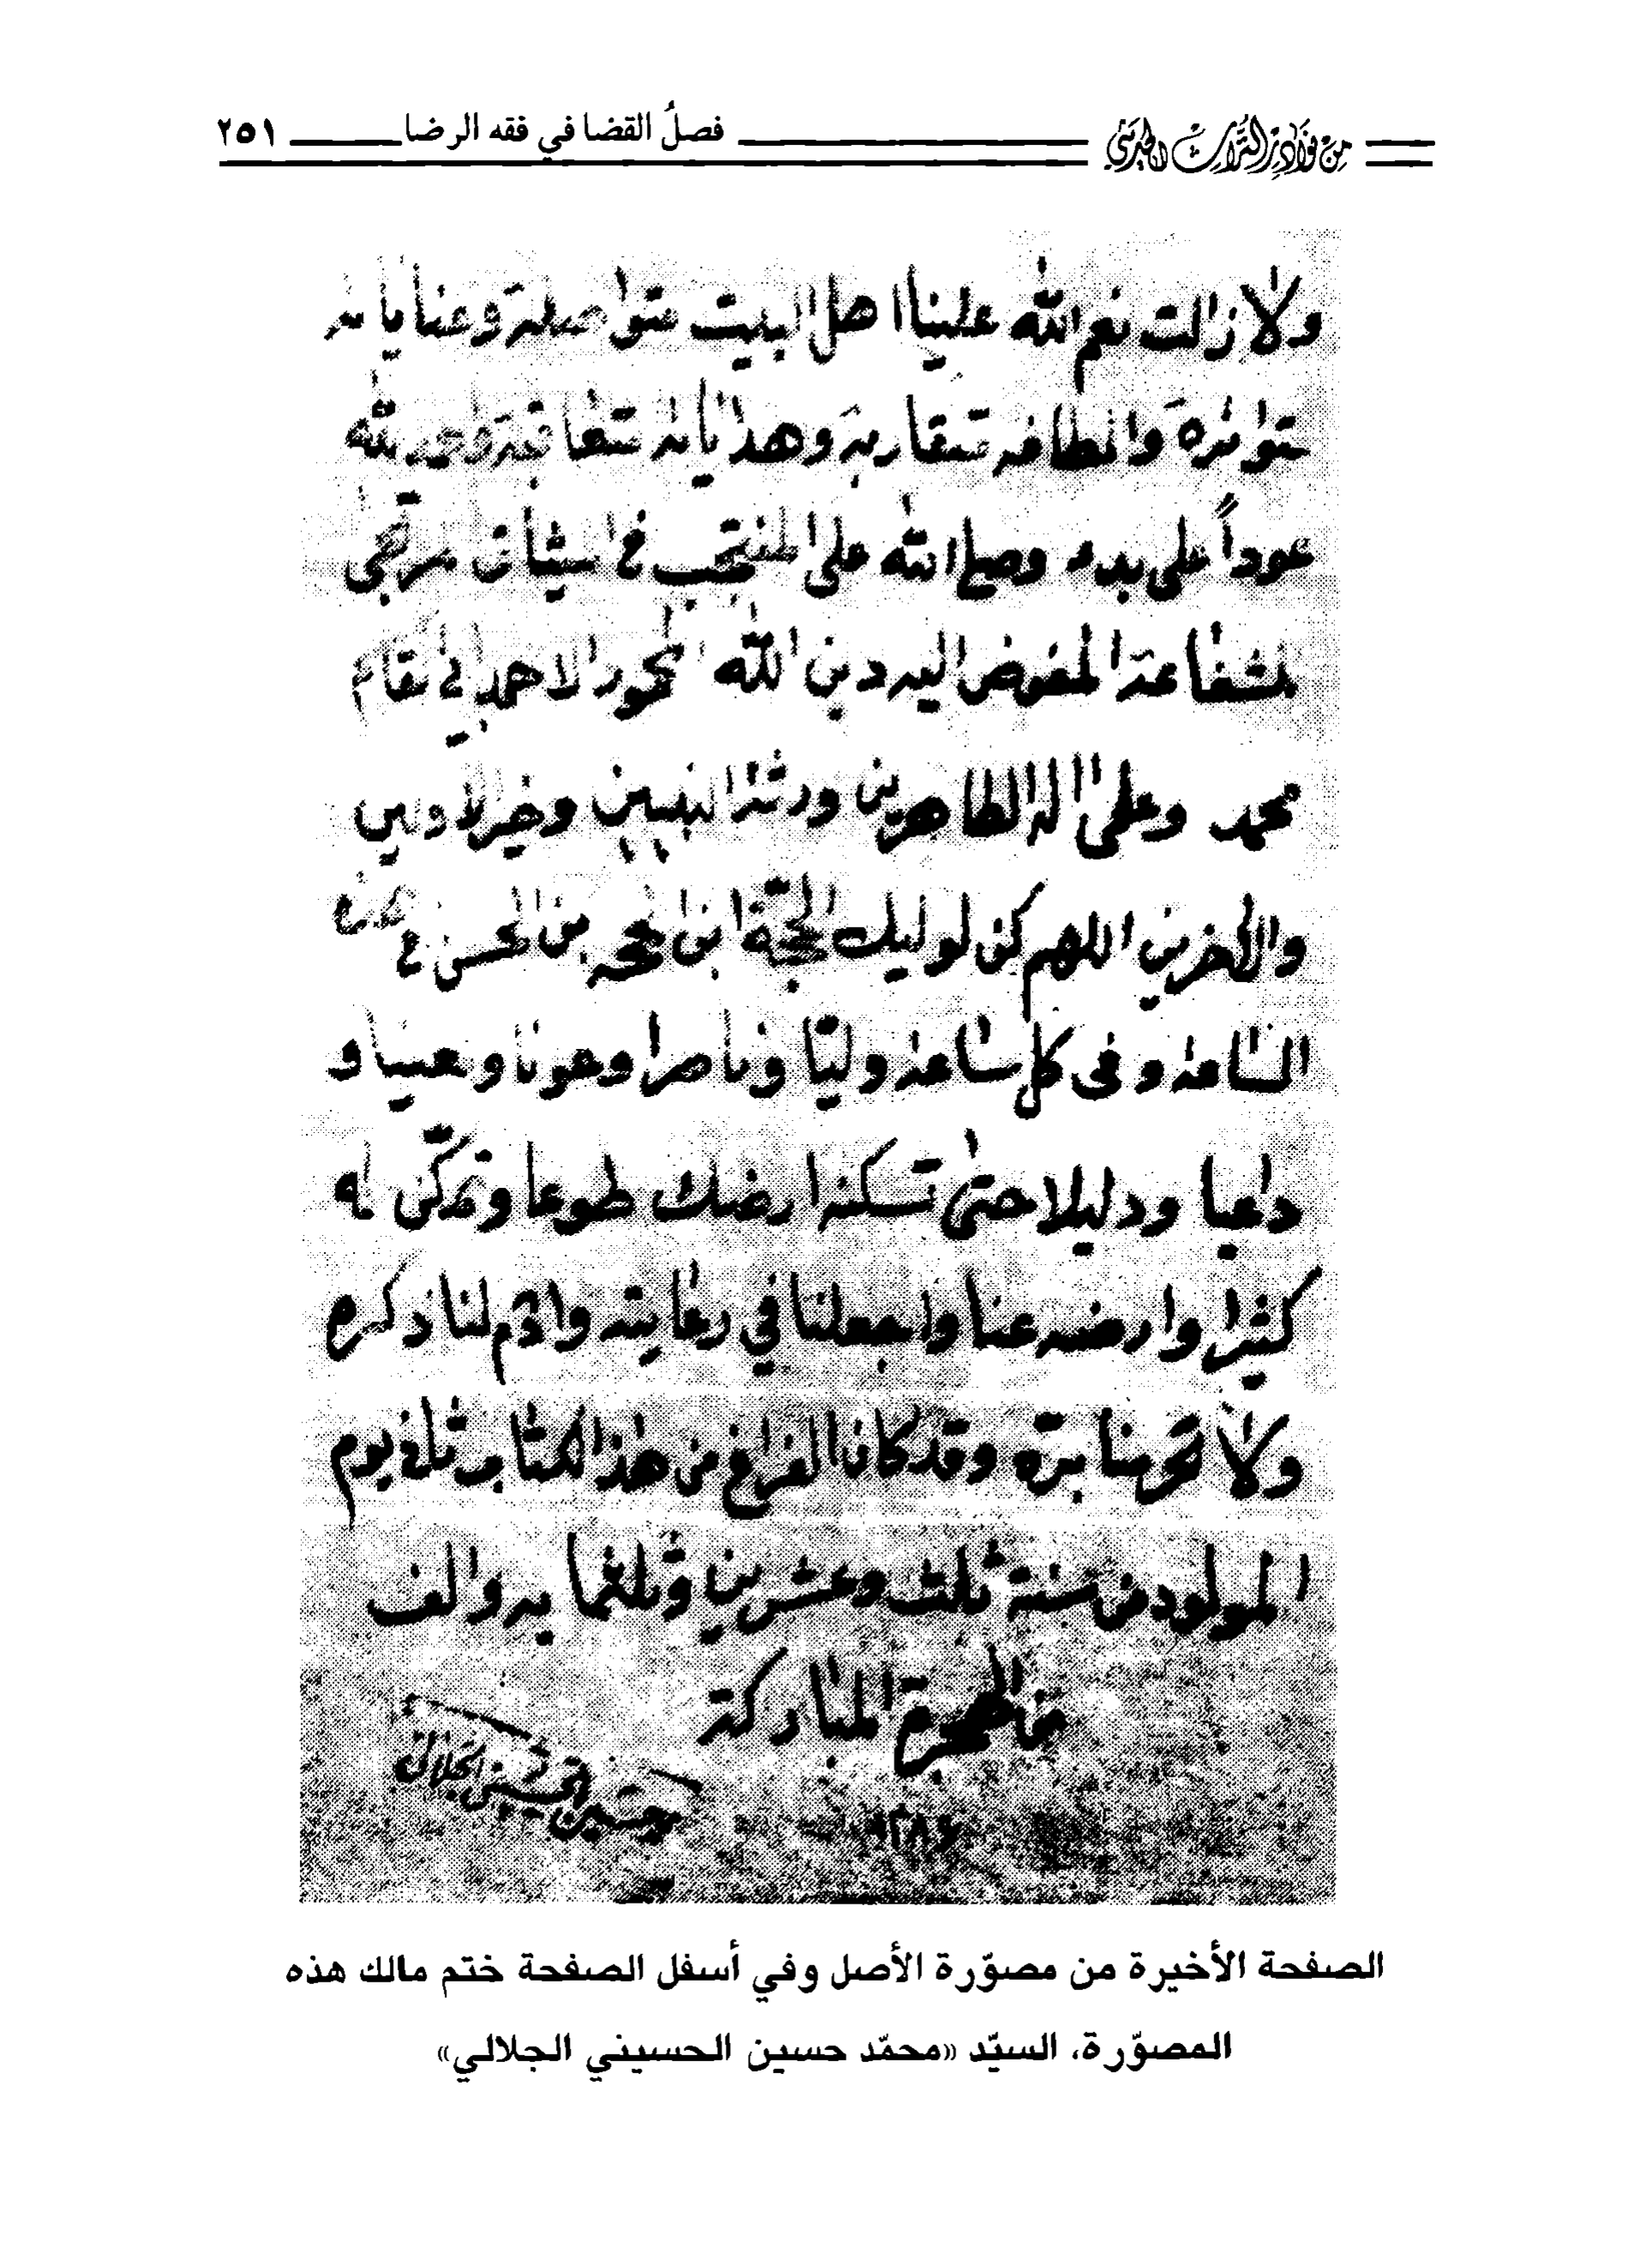 من نوادر التراث الحديثي فصلُ القضا في فقه الرضا ٢٥١
ولا زالت نعم الله علينا اهل البيت متواصلة وعناياته
متواترة والطافه متقاربة وهداياته متعاقبة والحمد لله
عوداً على بدء وصلى الله على المنتجب في الميثاق المرتجى
للشفاعة المفوض اليه دين الله المحمود الاحمد في مقام
محمد وعلى اله الطاهرين ورثة النبيين وخير الاولين
والاخرين اللهم كن لوليك الحجة ابن الحجة بن الحسن في هذه
الساعة وفي كل ساعة وليّا وناصرا وعونا ومعينا و
داعيا ودليلا حتى تسكنه ارضك طوعا وتمكّن له
كثيرا وارضه عنا واجعلنا في رعايته وادم لنا ذكره
ولا تحرمنا برّه وقد كان الفراغ من هذا الكتاب ثلث يوم
المولود من سنة ثلث وعشرين وثلثمايه والف
من الهجرة المباركة
محمد حسين الحسيني الجلالي
١٣٨٦
الصفحة الأخيرة من مصوّرة الأصل وفي أسفل الصفحة ختم مالك هذه
المصوّرة، السيّد «محمّد حسين الحسيني الجلالي»